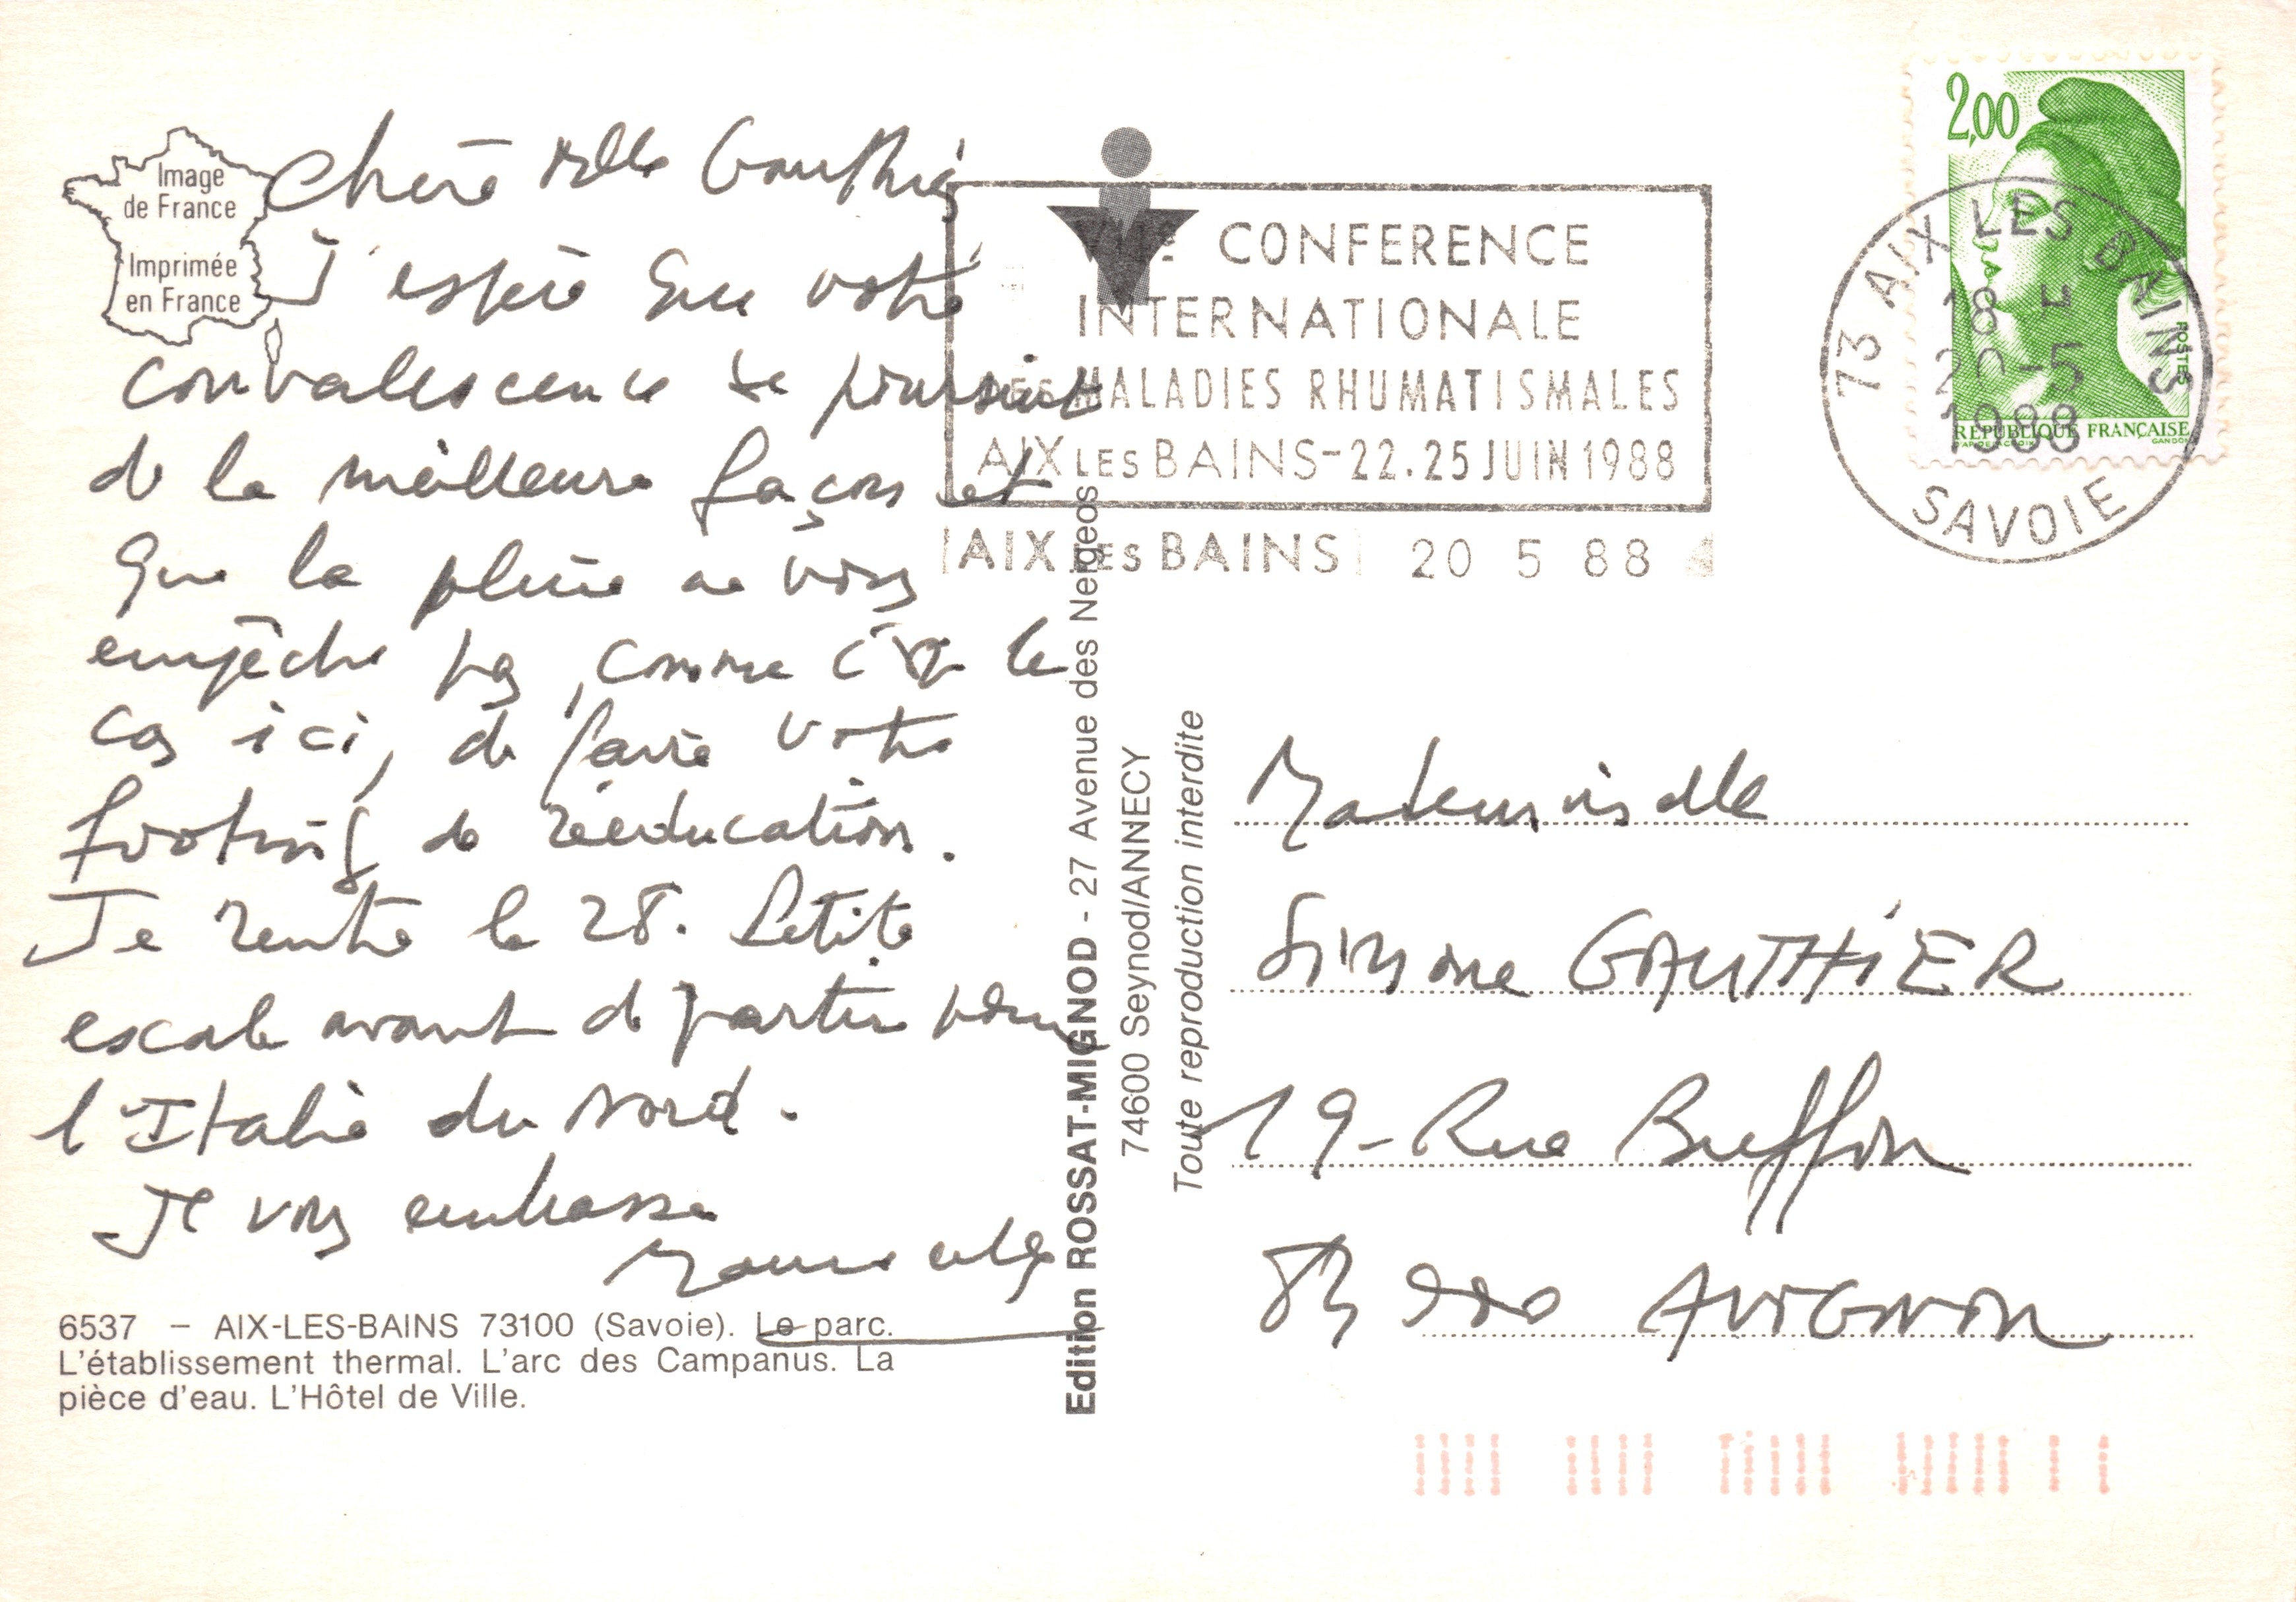 Image
de France
Imprimée
en France
Chère Mlle Gauthier
J'espère que votre
convalescence se poursuit
de la meilleure façon et
que la pluie ne vous
empêche pas, comme c'est le
cas ici, de faire votre
footing de rééducation.
Je rentre le 28. Petite
escale avant de partir pour
l'Italie du Nord.
Je vous embrasse
6537 – AIX-LES-BAINS 73100 (Savoie). Le parc.
L'établissement thermal. L'arc des Campanus. La
pièce d'eau. L'Hôtel de Ville.
Edition ROSSAT-MIGNOD - 27 Avenue des Neigeos
74600 Seynod/ANNECY
Toute reproduction interdite
CONFERENCE
INTERNATIONALE
DES MALADIES RHUMATISMALES
AIX LES BAINS-22.25 JUIN 1988
AIX LES BAINS 20 5 88
2,00
POSTES
RÉPUBLIQUE FRANÇAISE
GANDON
73 AIX LES BAINS
18 H
20-5
1988
SAVOIE
Mademoiselle
Simone GAUTHIER
19-Rue Buffon
84000 AVIGNON